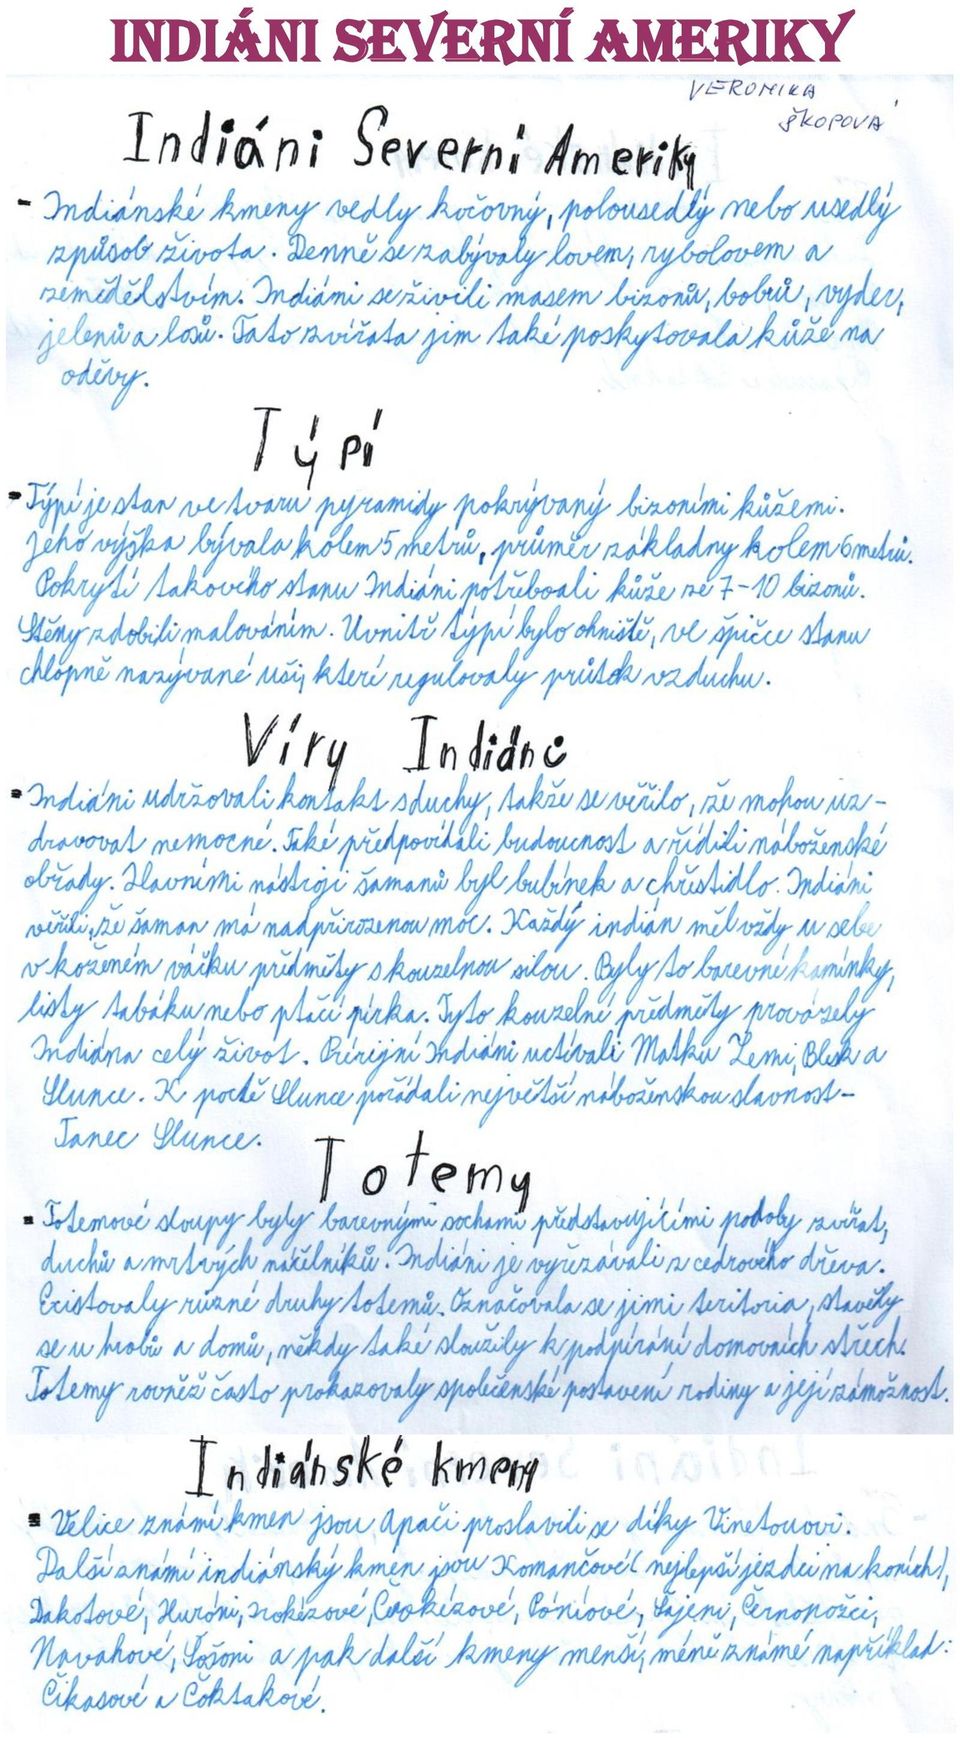 INDIÁNI SEVERNÍ AMERIKY
VERONIKA
ŠKOPOVÁ
Indiáni Severní Ameriky
- Indiánské kmeny vedly kočovný, polousedlý nebo usedlý
způsob života. Denně se zabývaly lovem, rybolovem a
zemědělstvím. Indiáni se živili masem bizonů, bobrů, vyder,
jelenů a losů. Tato zvířata jim také poskytovala kůže na
oděvy.
Týpí
- Týpí je stan ve tvaru pyramidy pokrývaný bizoními kůžemi.
Jeho výška bývala kolem 5 metrů, průměr základny kolem 6 metrů.
Pokrytí takového stanu Indiáni potřeboali kůže ze 7-10 bizonů.
Stěny zdobili malováním. Uvnitř týpí bylo ohniště, ve špičce stanu
chlopně nazývané uši, které regulovaly průtok vzduchu.
Víry Indiánů
- Indiáni udržovali kontakt s duchy, takže se věřilo, že mohou uz-
dravovat nemocné. Také předpovídali budoucnost a řídili náboženské
obřady. Hlavními nástroji šamanů byl bubínek a chřestidlo. Indiáni
věřili, že šaman má nadpřirozenou moc. Každý indián měl vždy u sebe
v koženém váčku předměty s kouzelnou silou. Byly to barevné kamínky,
listy tabáku nebo ptačí pírka. Tyto kouzelné předměty provázely
Indiána celý život. Prérijní Indiáni uctívali Matku Zemi, Blesk a
Slunce. K poctě Slunce pořádali největší náboženskou slavnost-
Tanec Slunce.
Totemy
- Totemové sloupy byly barevnými sochami představujícími podoby zvířat,
duchů a mrtvých náčelníků. Indiáni je vyřezávali z cedrového dřeva.
Existovaly různé druhy totemů. Označovala se jimi teritoria, stavěly
se u hrobů a domů, někdy také sloužily k podpírání domovních střech.
Totemy rovněž často prokazovaly společenské postavení rodiny a její zámožnost.
Indiánské kmeny
- Velice známí kmen jsou Apači proslavili se díky Vinetouovi.
Další známí indiánský kmen jsou Komančové (nejlepší jezdci na koních),
Dakotové, Huróni, Irokézové, Čerokézové, Póníové, Šajeni, Černonožci,
Navahové, Šošoni a pak další kmeny menší, méně známé například:
Čikasové a Čoktakové.